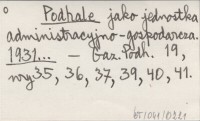 Podhale jako jednostka
administracyjno-gospodarcza.
1931... — Gaz. Podh. 19,
nry 35, 36, 37, 39, 40, 41.